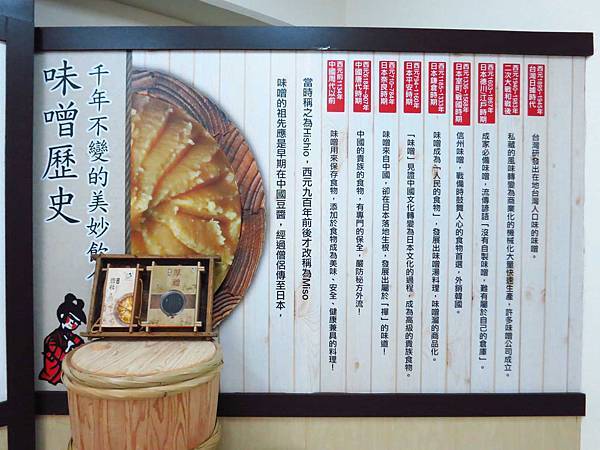 味噌歷史
千年不變的美妙飲
味噌的祖先應是早期在中國豆醬，經過僧侶傳至日本，
當時稱之為Hishio，西元九百年前後才改稱為Miso
西元前1134年
中國周代以前
味噌用來保存食物，添加於食物成為美味、安全、健康兼具的料理！
西元618~907年
中國唐代時期
中國的貴族的食物，有專門的保全，嚴防秘方外流！
西元710~794年
日本奈良時期
味噌來自中國，卻在日本落地生根，發展出屬於「禪」的味道！
西元794~1160年
日本平安時期
「味噌」見證中國文化轉變為日本文化的過程，成為高級的貴族食物。
西元1185~1333年
日本鎌倉時期
味噌成為「人民的食物」，發展出味噌湯料理，味噌溜的商品化。
西元1336~1568年
日本室町戰國時期
信州味噌，戰備時鼓舞人心的食物首選，外銷韓國。
西元1603~1867年
日本德川江戶時期
成家必備味噌，流傳諺語「沒有自製味噌，難有屬於自己的倉庫」。
西元1940~1953年
二次大戰和戰後
私藏的風味轉變為商業化的機械化大量快速生產，許多味噌公司成立。
西元1895~1945年
台灣日據時代
台灣研發出在地台灣人口味的味噌。